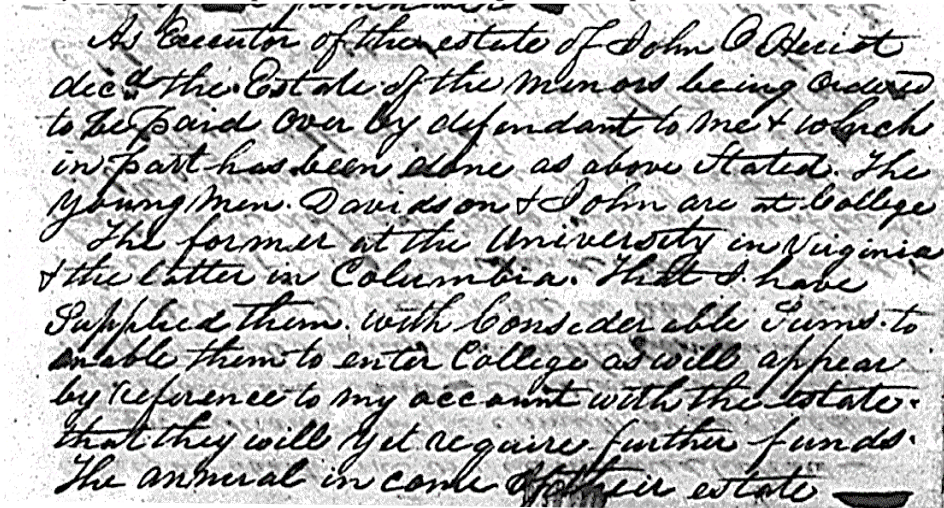 As Executor of the estate of John O Heriot
decd the Estate of the minors being ordered
to be paid over by defendant to me & which
in part has been done as above stated. The
young men. Davidson & John are at College
The former at the University in Virginia
& the latter in Columbia. That I have
Supplied them. with Considerable Sums. to
enable them to enter College as will appear
by reference to my account with the estate.
that they will yet require further funds.
The annual income of their estate